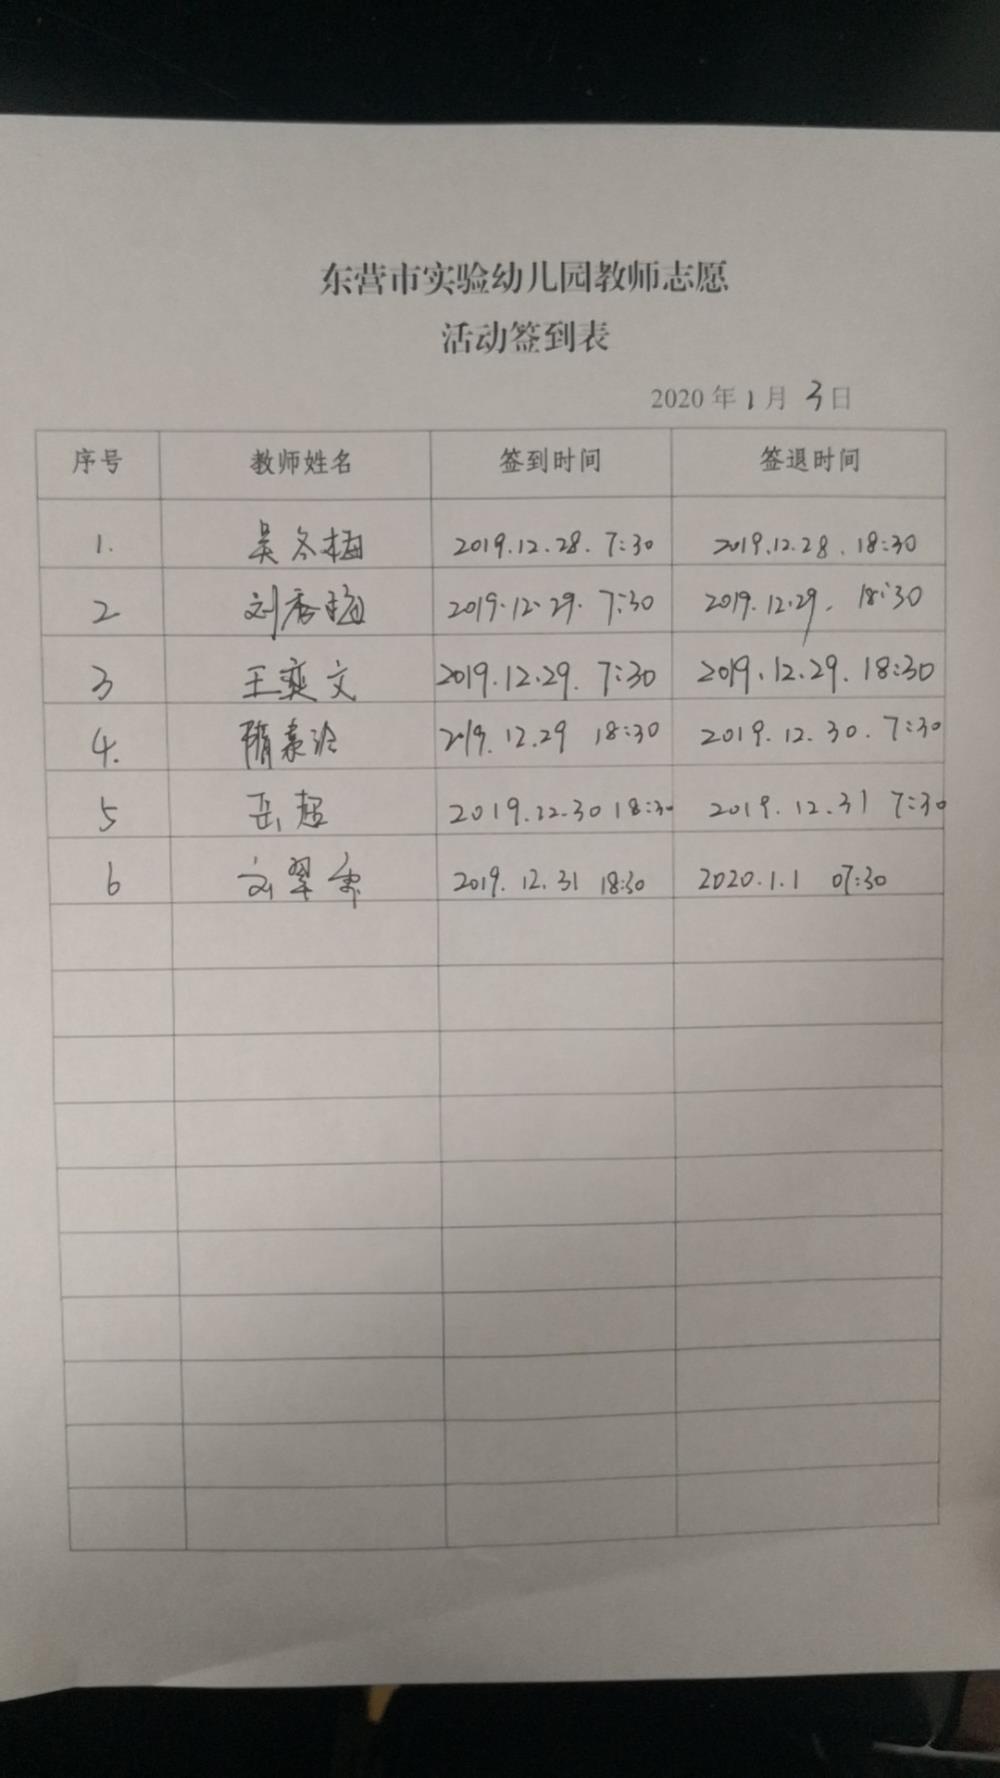 东营市实验幼儿园教师志愿
活动签到表
2020年1月3日
序号 教师姓名 签到时间 签退时间
1. 吴冬梅 2019.12.28. 7:30 2019.12.28. 18:30
2 刘秀梅 2019.12.29. 7:30 2019.12.29. 18:30
3 王奕文 2019.12.29. 7:30 2019.12.29. 18:30
4. 隋 2019.12.29 18:30 2019.12.30. 7:30
5 岳超 2019.12.30 18:30 2019.12.31 7:30
6 刘翠 2019.12.31 18:30 2020.1.1 07:30